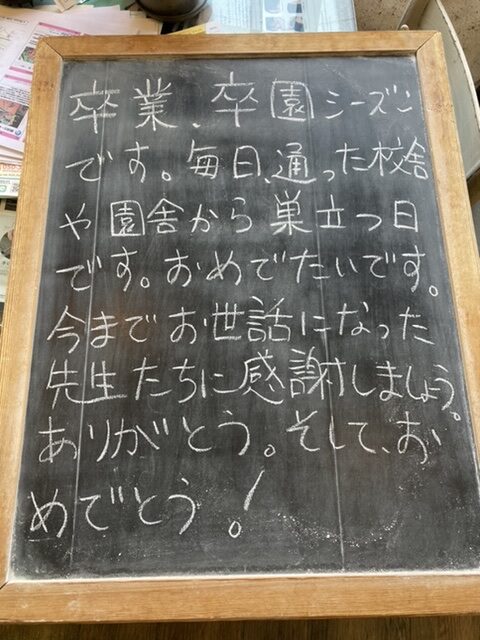 卒業、卒園シーズン
です。毎日、通った校舎
や園舎から巣立つ日
です。おめでたいです。
今までお世話になった
先生たちに感謝しましょう。
ありがとう。そして、お
めでとう!